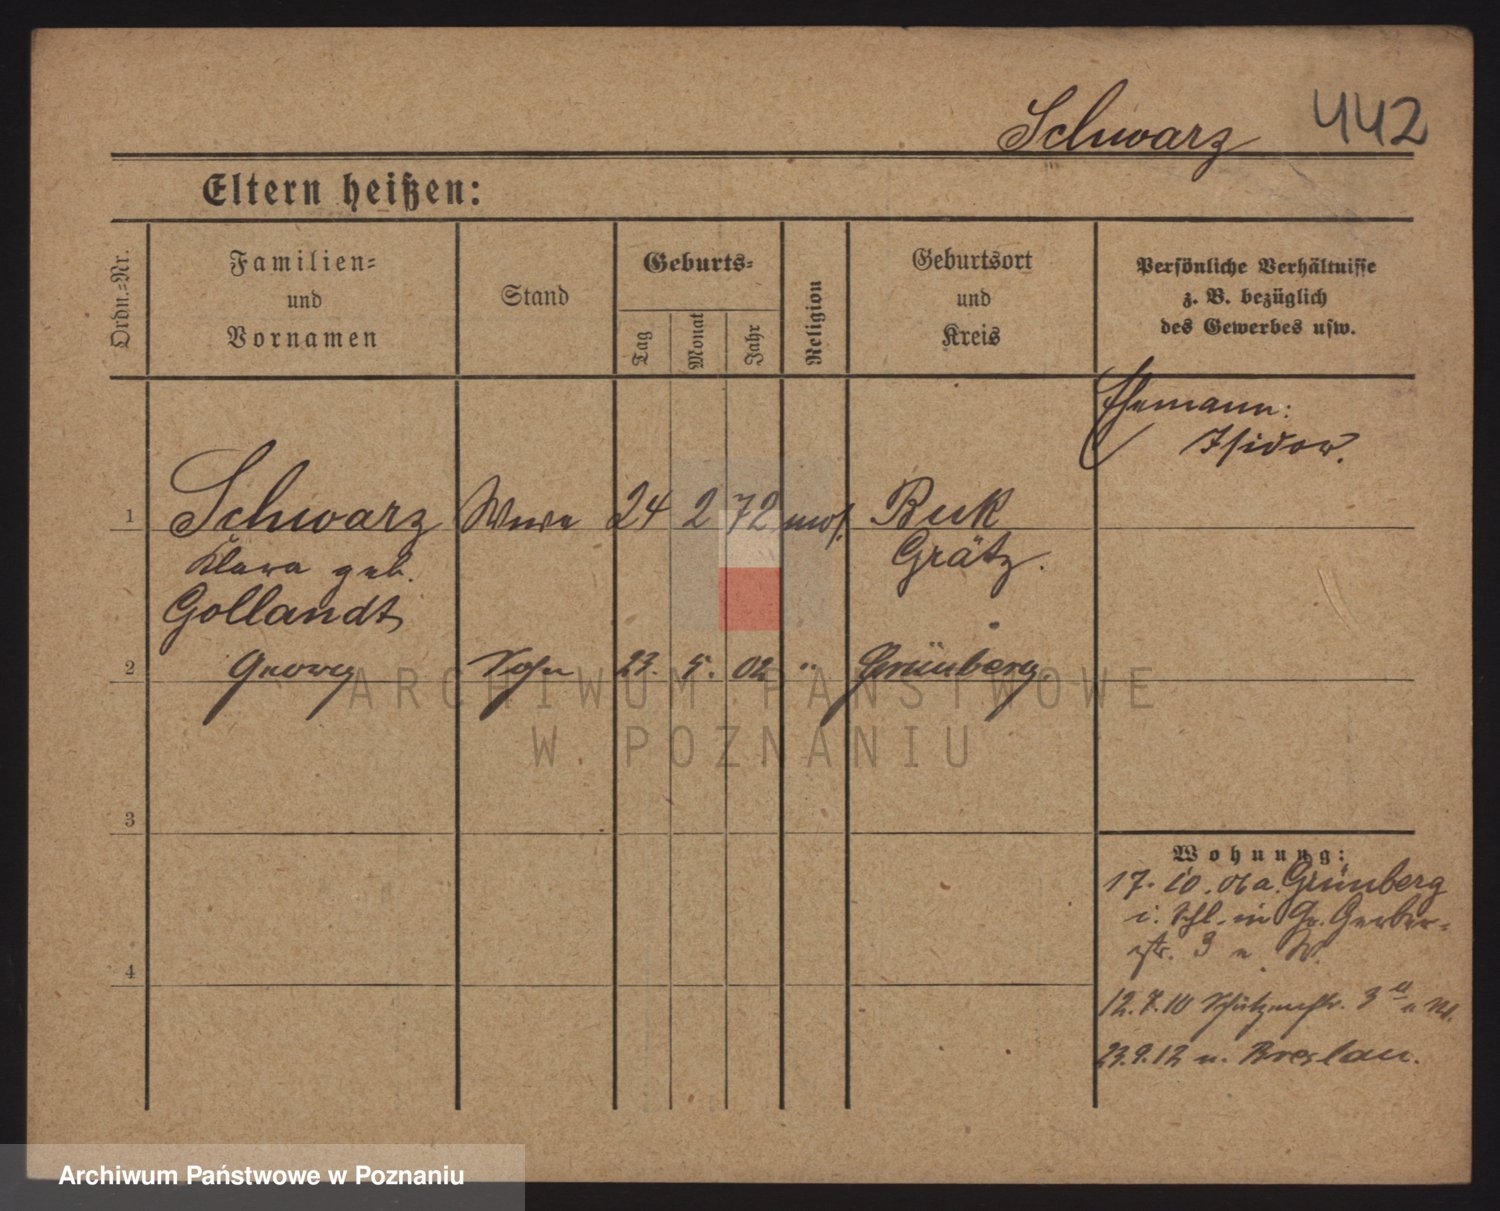 Schwarz 442
Eltern heißen:
Ordn.=Nr.
Familien=
und
Vornamen
Stand
Geburts=
Tag
Monat
Jahr
Religion
Geburtsort
und
Kreis
Persönliche Verhältnisse
z. B. bezüglich
des Gewerbes usw.
Ehemann:
Isidor.
1 Schwarz Wwe 24 2 72 mos. Buk
Klara geb. Grätz.
Gollandt
2 Georg Sohn 23. 5. 02 " Grünberg.
ARCHIWUM PAŃSTWOWE
W POZNANIU
3
Wohnung:
17. 10. 06 a. Grünberg
i. Schl. in Gr. Gerber=
str. 3 W.
4
12.7.10 Schützenstr. 3
23.9.12 n. Breslau.
Archiwum Państwowe w Poznaniu